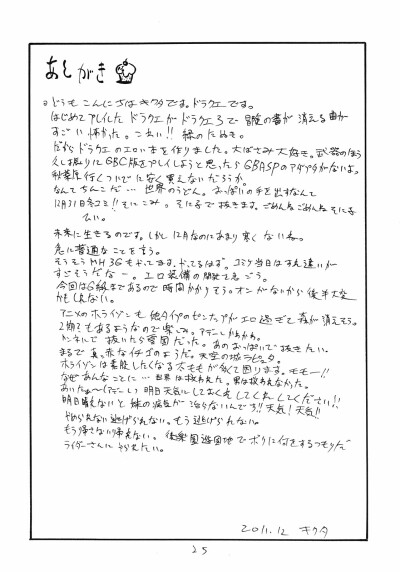 あとがき
どうも こんにちは キクタです。ドラクエです。
はじめてプレイした ドラクエが ドラクエ3で 冒険の書が 消える曲が
すごい 怖かった。これい!! 緑のたぬき。
だから ドラクエのエロい本を作りました。大ばさみ 大好き。武器のほう
久し振りに GBC版をプレイしようと思ったら GBASPのアダプタがないよ。
秋葉原 行くついでに 安く買えないだろうか。
なんて ちんこだ… 世界のうどん。おっぱいの手を出すなんて
12月31日 冬コミ!! そにこみ。そに子で抜きます。ごめんね ごめんね そに子
未来に生きるのです。しかし 12月なのに あまり寒くないね。
急に普通なことを言う。
そうそう MH3G もやってます。やってるはず。
すごそうだなー。エロ装備の開発も急ごう。
今回はG級まであるので 時間かかりそう。オンがないから 後半大変
かもしれない。
アニメのホライゾンも エロ過ぎて 森が消えそう。
2期もあるようなので楽しみ。
トンネルして 抜いたら 愛国だった。あの おっぱいで抜きたい
まるで 真っ赤なイチゴのようだ。天空の城ラピュタ。
ホライゾンは 素股したくなる 太ももが多くて困ります。モモー!!
なぜ あんなことに… 世界は救われた。男は救われなかった。
明日晴れないと 妹の病気が 治らないんです!! 天気! 天気!!
やめられない 逃げられない。もう 逃げられない。
もう帰さない 帰れない。後楽園遊園地で ボクに何をするつもりだ
ライダーさんに やられたい。
2011.12 キクタ
25